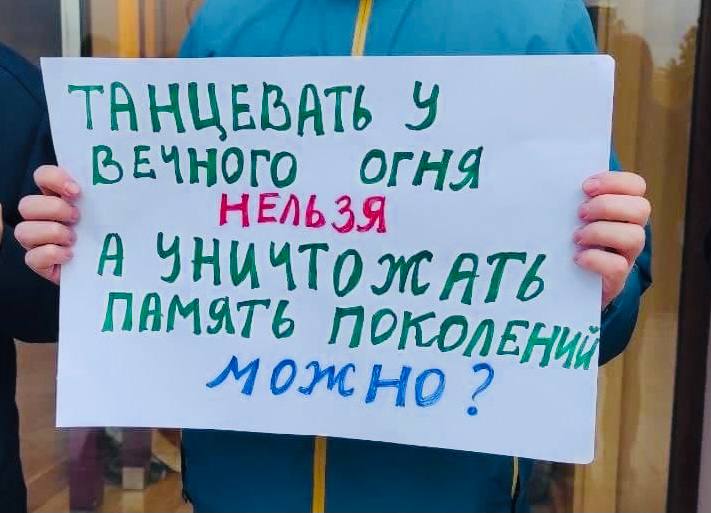 ТАНЦЕВАТЬ У
ВЕЧНОГО ОГНЯ
НЕЛЬЗЯ
А УНИЧТОЖАТЬ
ПАМЯТЬ ПОКОЛЕНИЙ
МОЖНО?